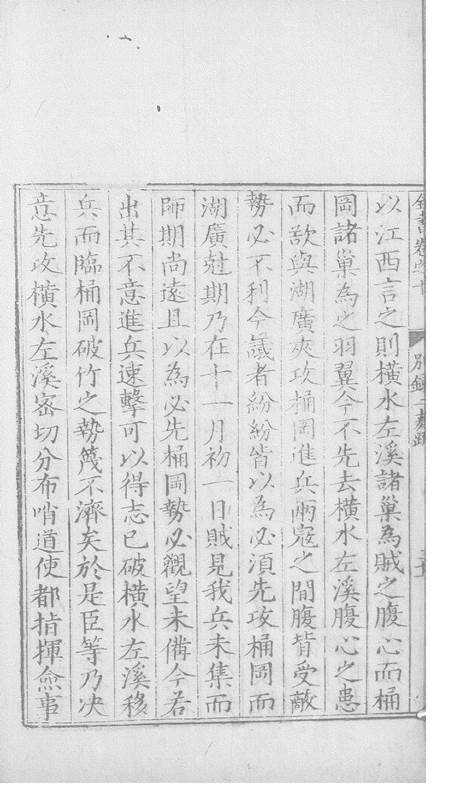 以江西言之則橫水左溪諸巢為賊之腹心而桶
岡諸巢為之羽翼今不先去橫水左溪腹心之患
而欲與湖廣夾攻桶岡進兵兩寇之間腹背受敵
勢必不利今議者紛紛皆以為必須先攻桶岡而
湖廣尅期乃在十一月初一日賊見我兵未集而
師期尚遠且以為必先桶岡勢必觀望未備今若
出其不意進兵速擊可以得志已破橫水左溪移
兵而臨桶岡破竹之勢蔑不濟矣於是臣等乃决
意先攻橫水左溪密切分布哨道使都指揮僉事